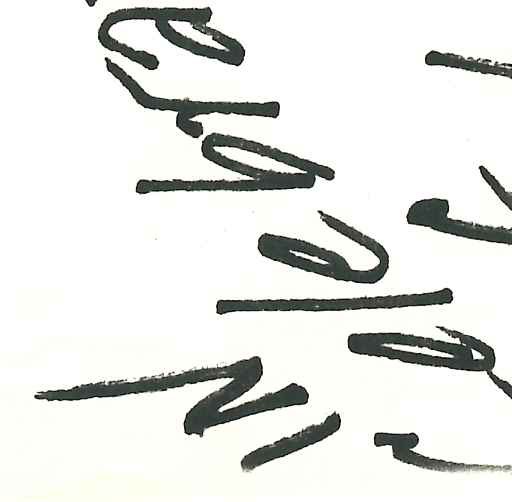 IN
Celebra